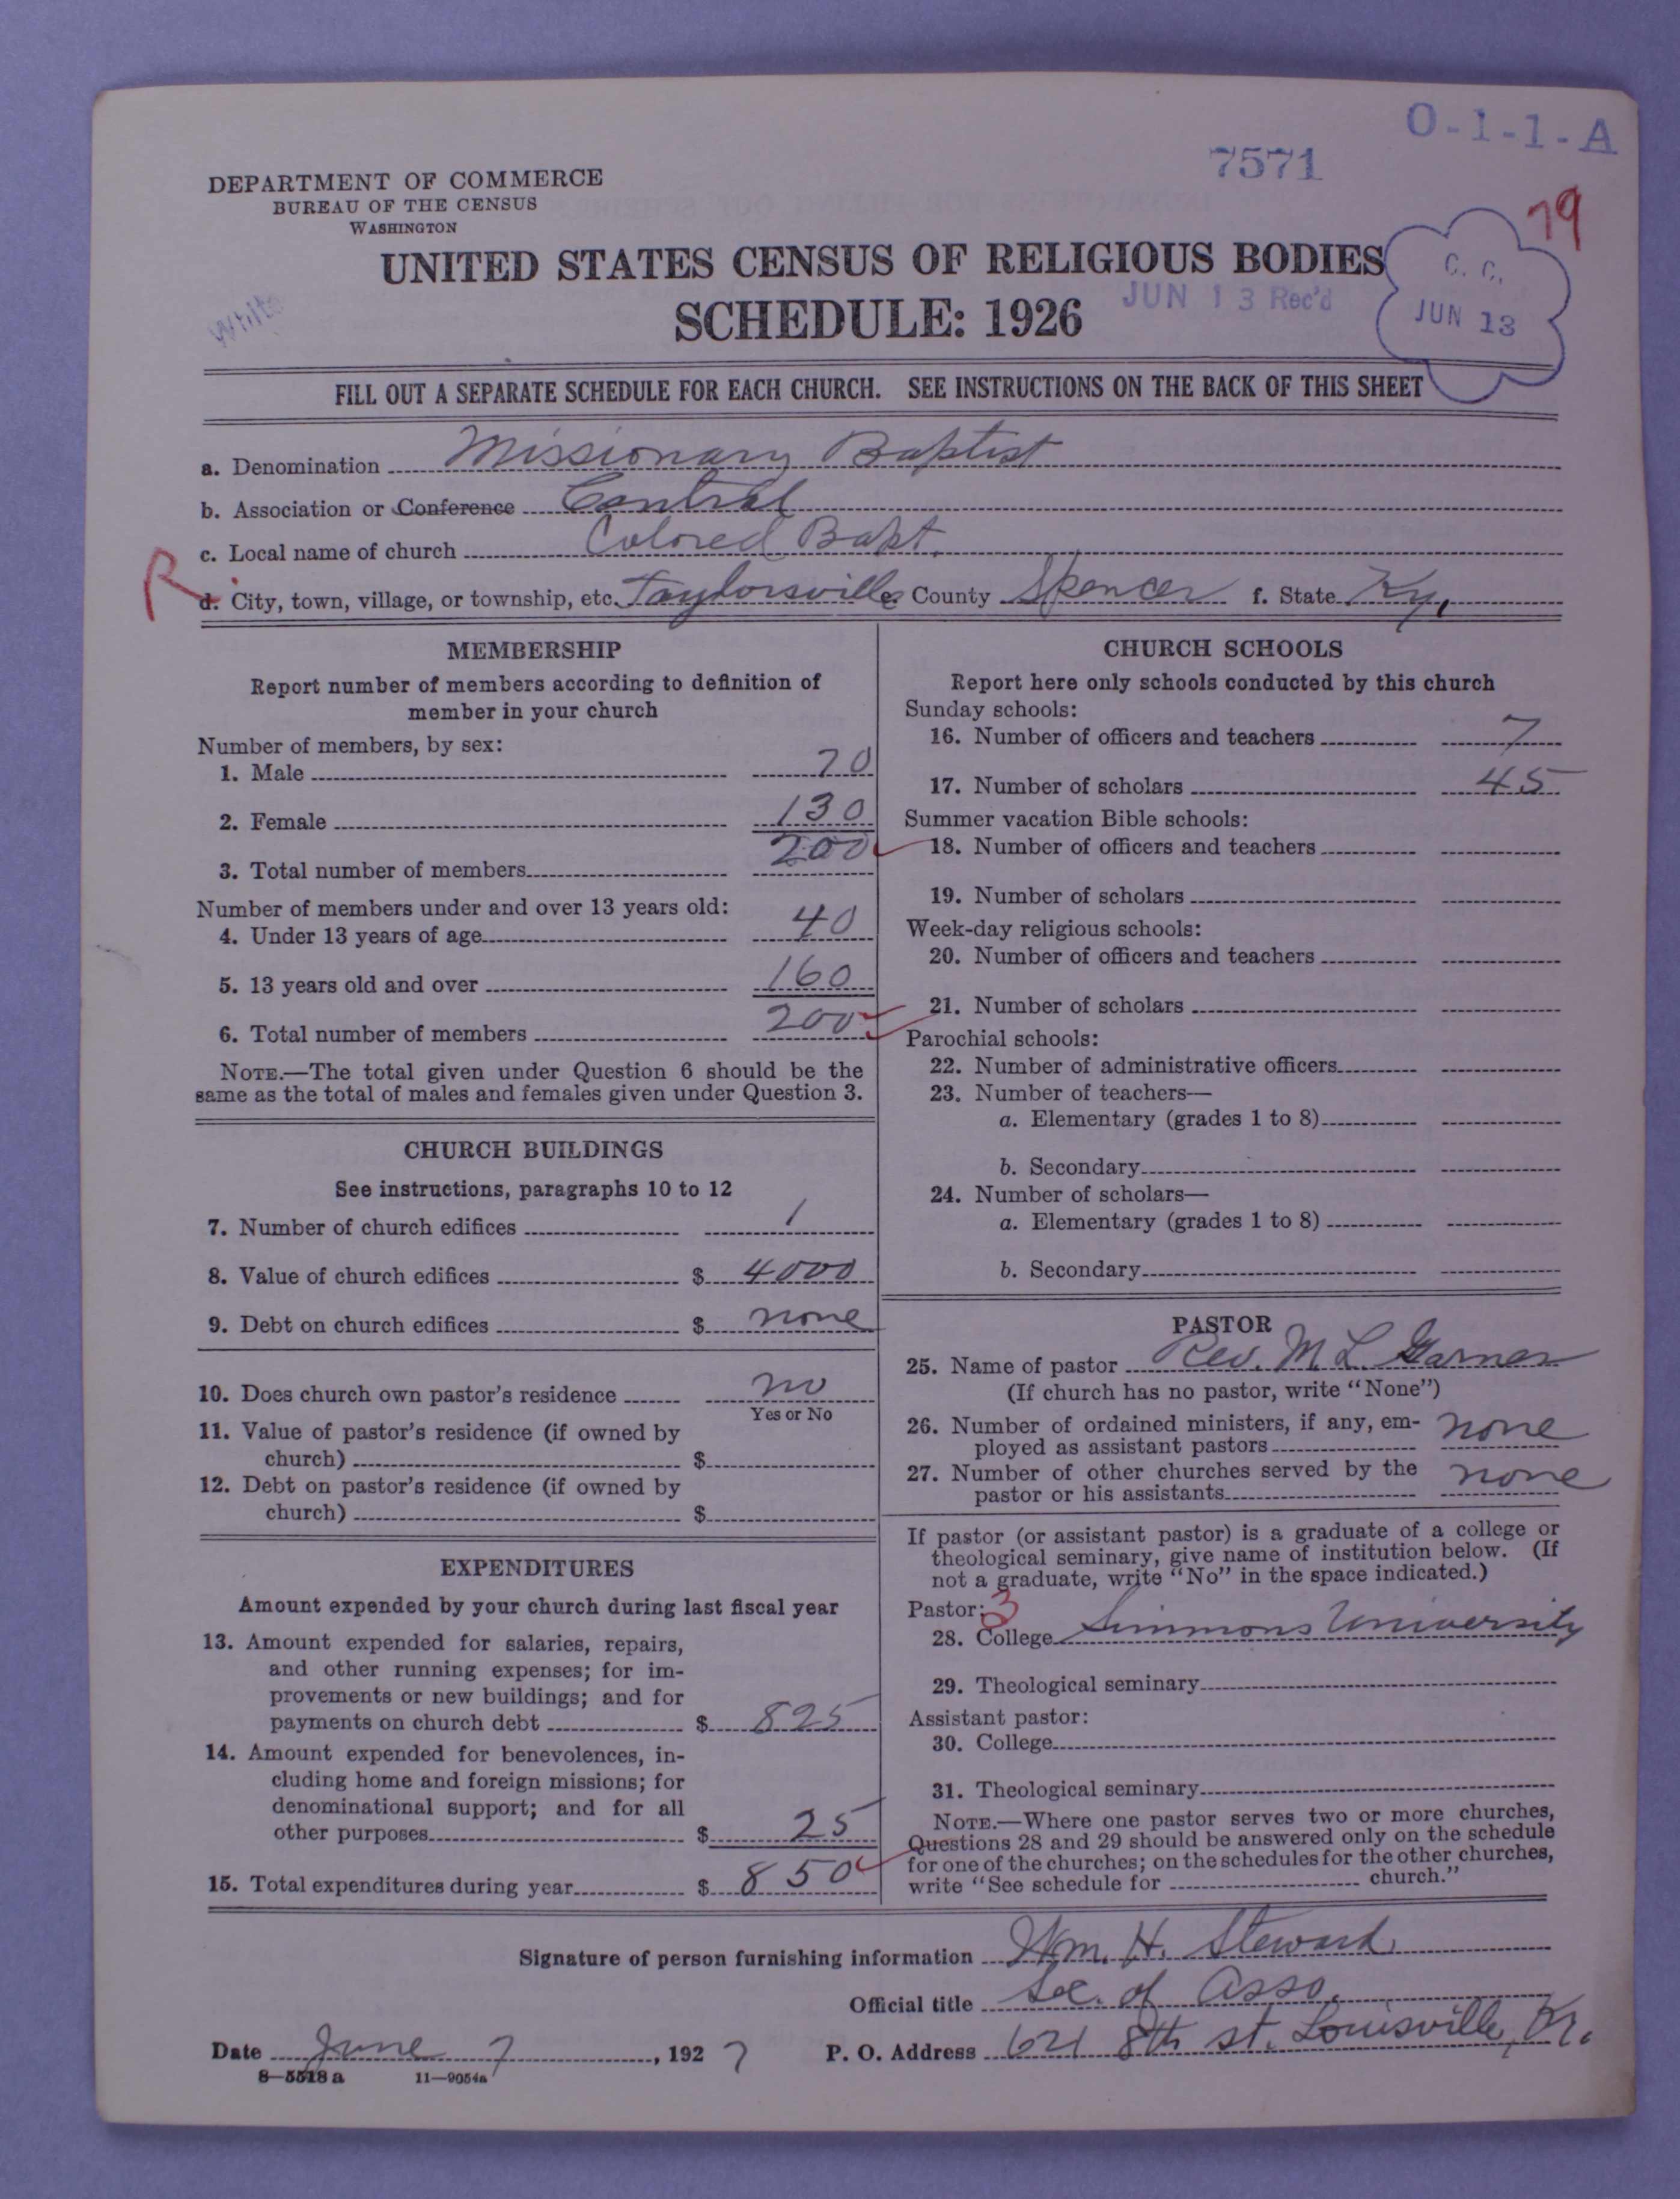 O-1-1-A
7571
79
DEPARTMENT OF COMMERCE
BUREAU OF THE CENSUS
WASHINGTON
UNITED STATES CENSUS OF RELIGIOUS BODIES
SCHEDULE: 1926
JUN 13 Rec'd
C. C.
JUN 13
Write
FILL OUT A SEPARATE SCHEDULE FOR EACH CHURCH. SEE INSTRUCTIONS ON THE BACK OF THIS SHEET
a. Denomination Missionary Baptist
b. Association or Conference Central
c. Local name of church Colored Bapt.
R
d. City, town, village, or township, etc. Taylorsville e. County Spencer f. State Ky.
MEMBERSHIP
Report number of members according to definition of
member in your church
Number of members, by sex:
1. Male 70
2. Female 130
3. Total number of members 200
Number of members under and over 13 years old:
4. Under 13 years of age 40
5. 13 years old and over 160
6. Total number of members 200
NOTE.—The total given under Question 6 should be the
same as the total of males and females given under Question 3.
CHURCH BUILDINGS
See instructions, paragraphs 10 to 12
7. Number of church edifices 1
8. Value of church edifices $ 4000
9. Debt on church edifices $ none
10. Does church own pastor's residence no
Yes or No
11. Value of pastor's residence (if owned by
church) $
12. Debt on pastor's residence (if owned by
church) $
EXPENDITURES
Amount expended by your church during last fiscal year
13. Amount expended for salaries, repairs,
and other running expenses; for im-
provements or new buildings; and for
payments on church debt $ 825
14. Amount expended for benevolences, in-
cluding home and foreign missions; for
denominational support; and for all
other purposes $ 25
15. Total expenditures during year $ 850
CHURCH SCHOOLS
Report here only schools conducted by this church
Sunday schools:
16. Number of officers and teachers 7
17. Number of scholars 45
Summer vacation Bible schools:
18. Number of officers and teachers
19. Number of scholars
Week-day religious schools:
20. Number of officers and teachers
21. Number of scholars
Parochial schools:
22. Number of administrative officers
23. Number of teachers—
a. Elementary (grades 1 to 8)
b. Secondary
24. Number of scholars—
a. Elementary (grades 1 to 8)
b. Secondary
PASTOR
25. Name of pastor Rev. M. L. Garner
(If church has no pastor, write "None")
26. Number of ordained ministers, if any, em-
ployed as assistant pastors none
27. Number of other churches served by the
pastor or his assistants none
If pastor (or assistant pastor) is a graduate of a college or
theological seminary, give name of institution below. (If
not a graduate, write "No" in the space indicated.)
Pastor: 3
28. College Simmons University
29. Theological seminary
Assistant pastor:
30. College
31. Theological seminary
NOTE.—Where one pastor serves two or more churches,
Questions 28 and 29 should be answered only on the schedule
for one of the churches; on the schedules for the other churches,
write "See schedule for church."
Signature of person furnishing information Wm. H. Steward
Official title Sec. of Asso.
Date June 7, 1927 P. O. Address 621 8th st. Louisville, Ky.
8—5518 a 11—9054a